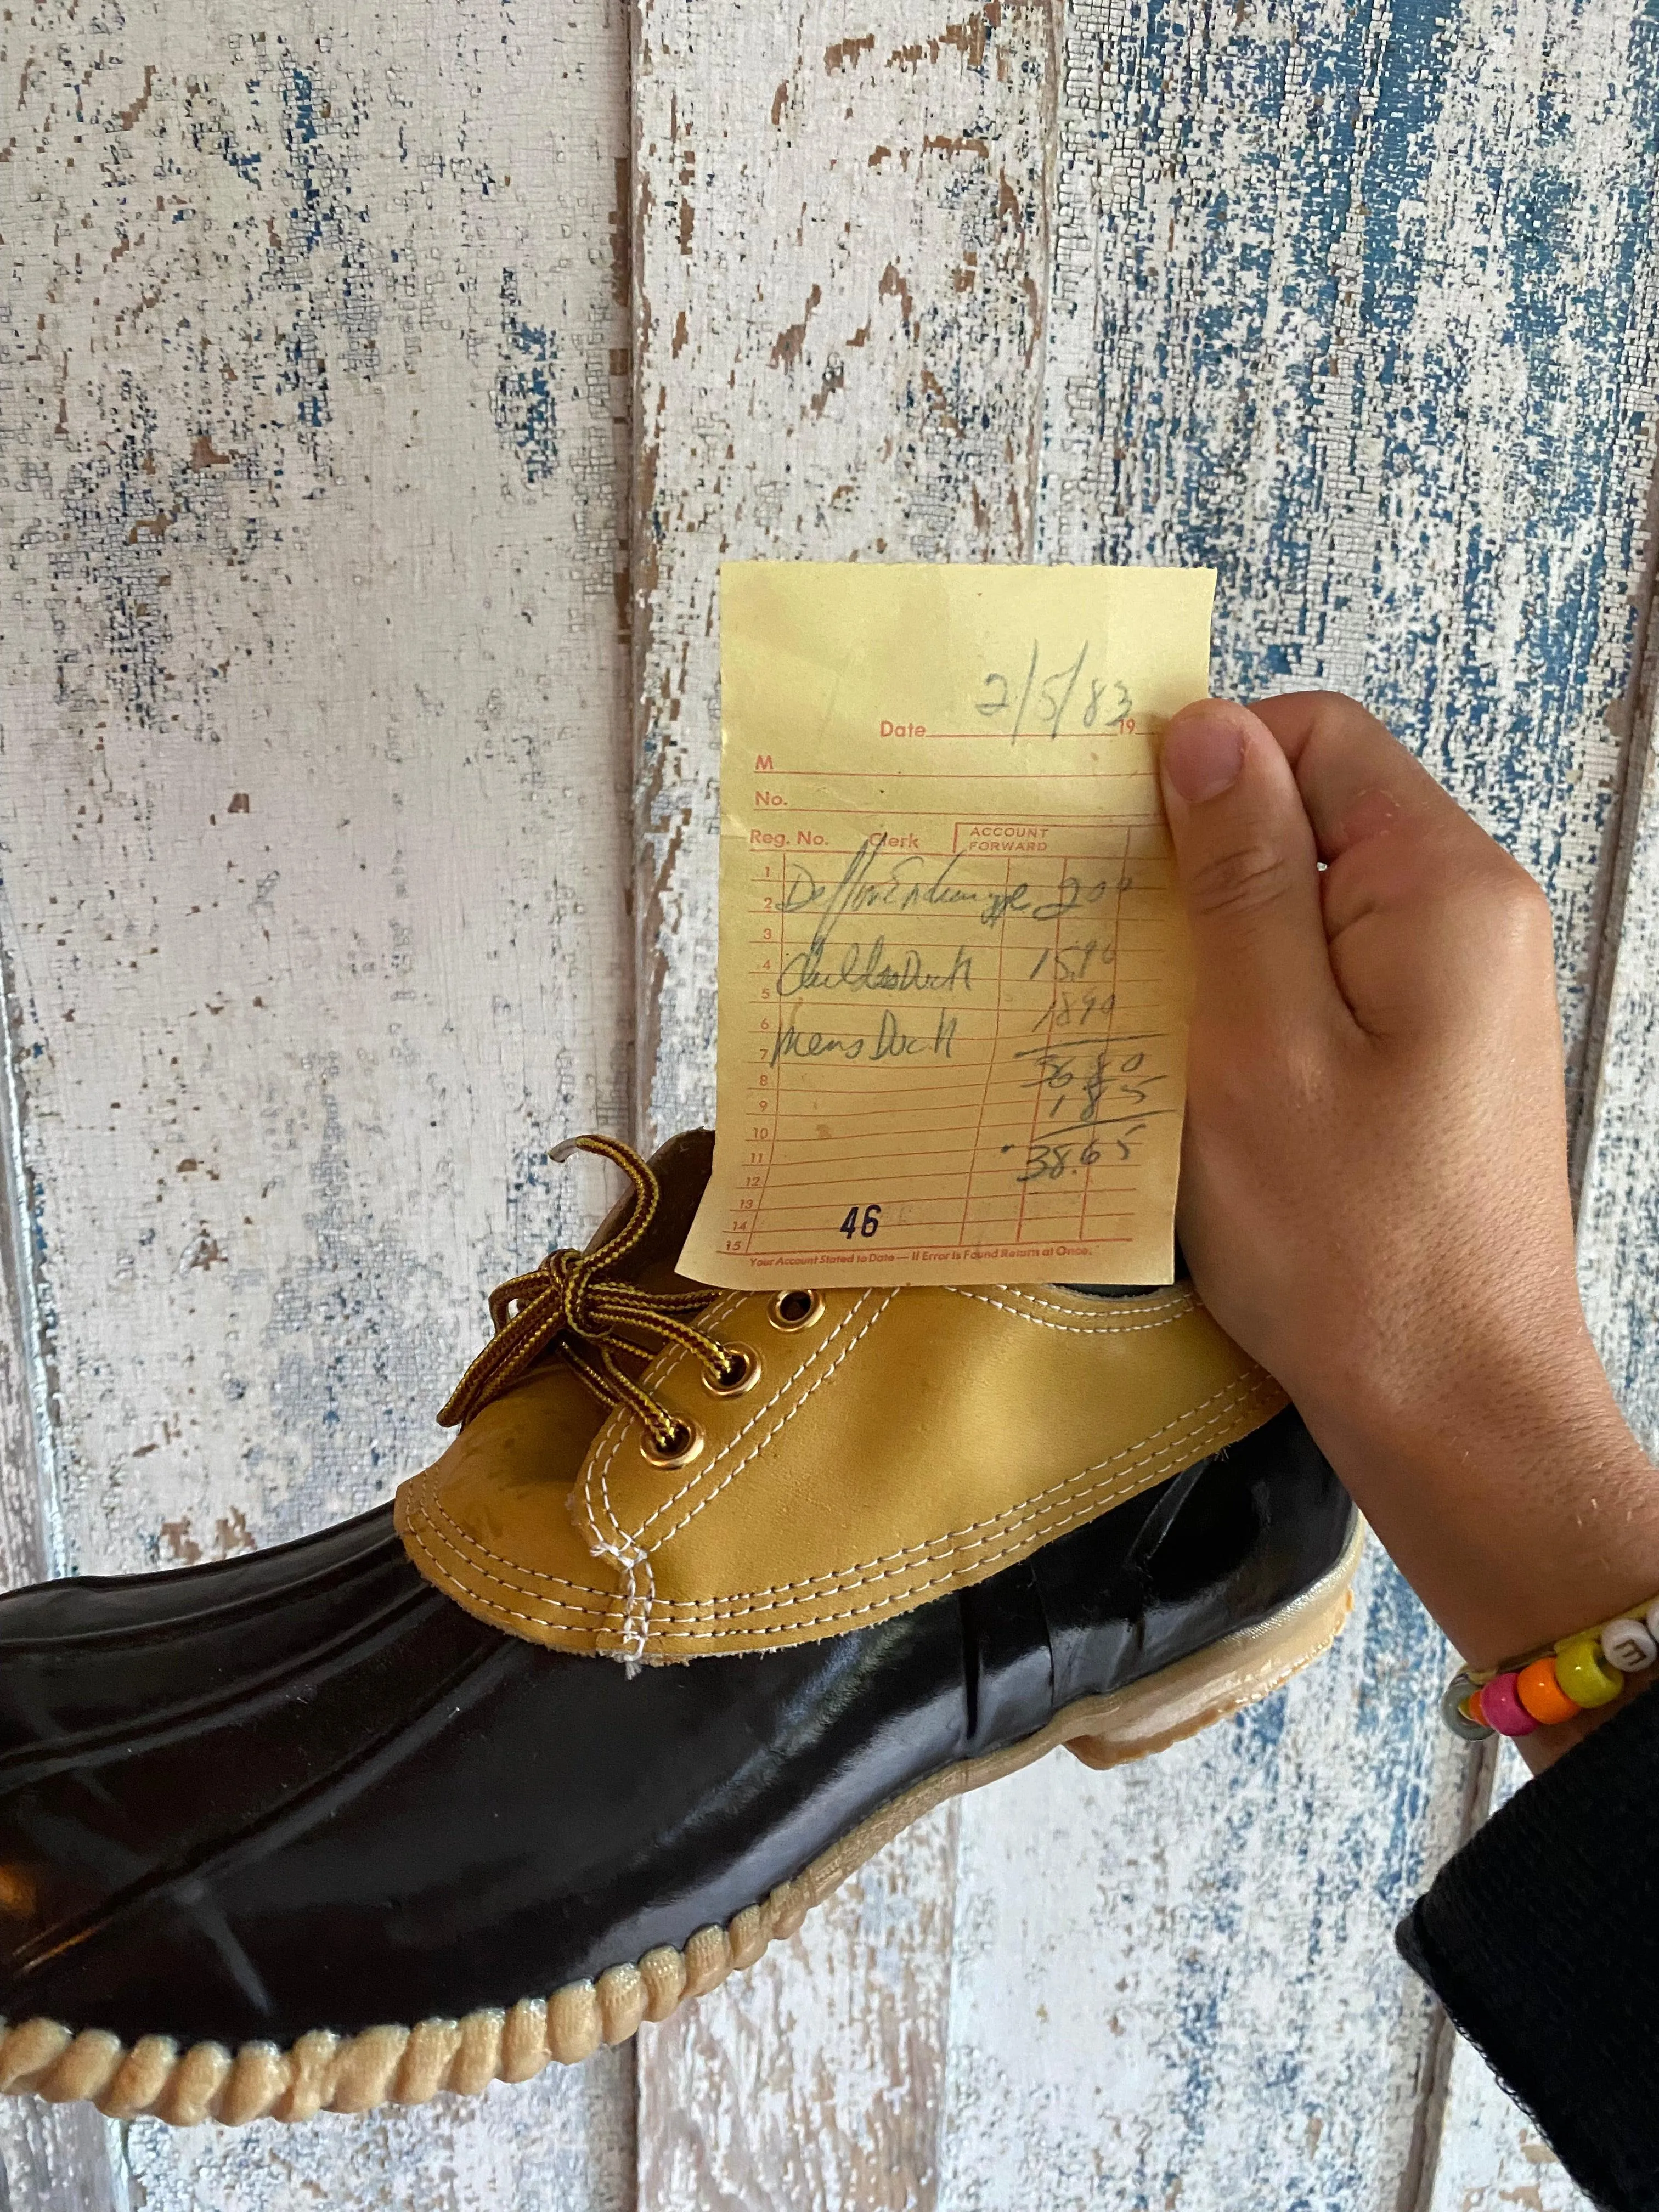 2/5/83
Date 19
M
No.
Reg. No. Clerk ACCOUNT FORWARD
1
2 Diff on Exchange 2 00
3
4 Childs Duck 15.90
5
6 18 90
7 Mens Duck
8 36 80
9 1 85
10
11 38.65
12
13
14 46
15
Your Account Stated to Date — If Error is Found Return at Once.
E